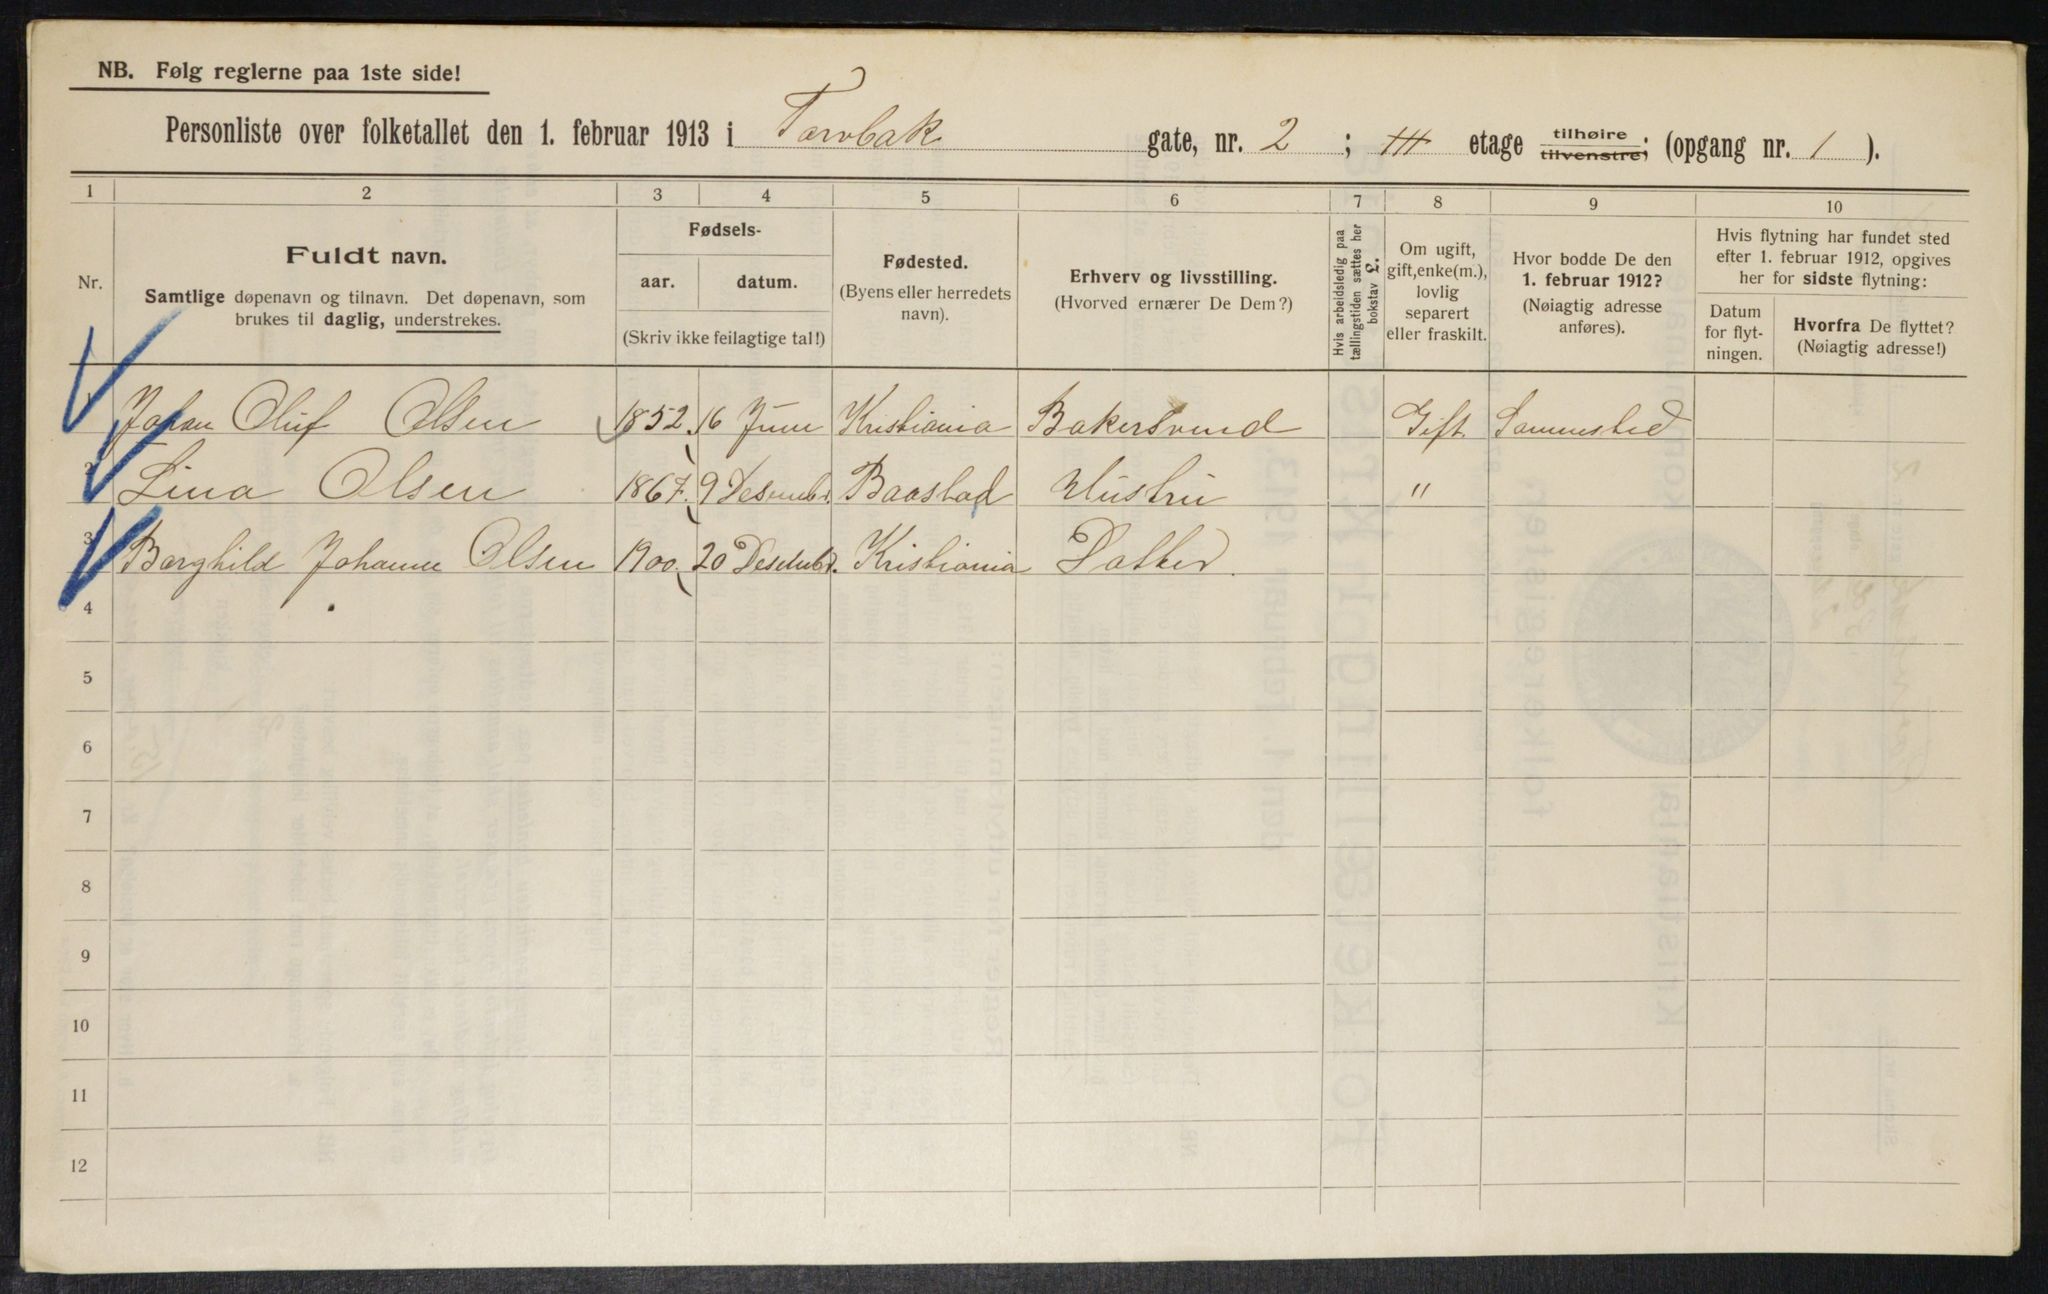 NB. Følg reglerne paa 1ste side!
Personliste over folketallet den 1. februar 1913 i Tarvbak gate, nr. 2 ; III etage tilhøire tilvenstre; (opgang nr. 1 ).
1 2 3 4 5 6 7 8 9 10
Nr.
Fuldt navn.
Samtlige døpenavn og tilnavn. Det døpenavn, som
brukes til daglig, understrekes.
Fødsels-
aar. datum.
(Skriv ikke feilagtige tal!)
Fødested.
(Byens eller herredets
navn).
Erhverv og livsstilling.
(Hvorved ernærer De Dem?)
Hvis arbeidsledig paa
tællingstiden sættes her
bokstav L.
Om ugift,
gift, enke(m.),
lovlig
separert
eller fraskilt.
Hvor bodde De den
1. februar 1912?
(Nøiagtig adresse
anføres).
Hvis flytning har fundet sted
efter 1. februar 1912, opgives
her for sidste flytning:
Datum
for flyt-
ningen.
Hvorfra De flyttet?
(Nøiagtig adresse!)
1 Johan Oluf Olsen 1852 16 Juni Kristiania Bakersvend Gift Sammested
2 Lina Olsen 1867. 9 Desembr. Baastad Hustru "
3 Borghild Johanne Olsen 1900. 20 Desembr. Kristiania Datter.
4
5
6
7
8
9
10
11
12